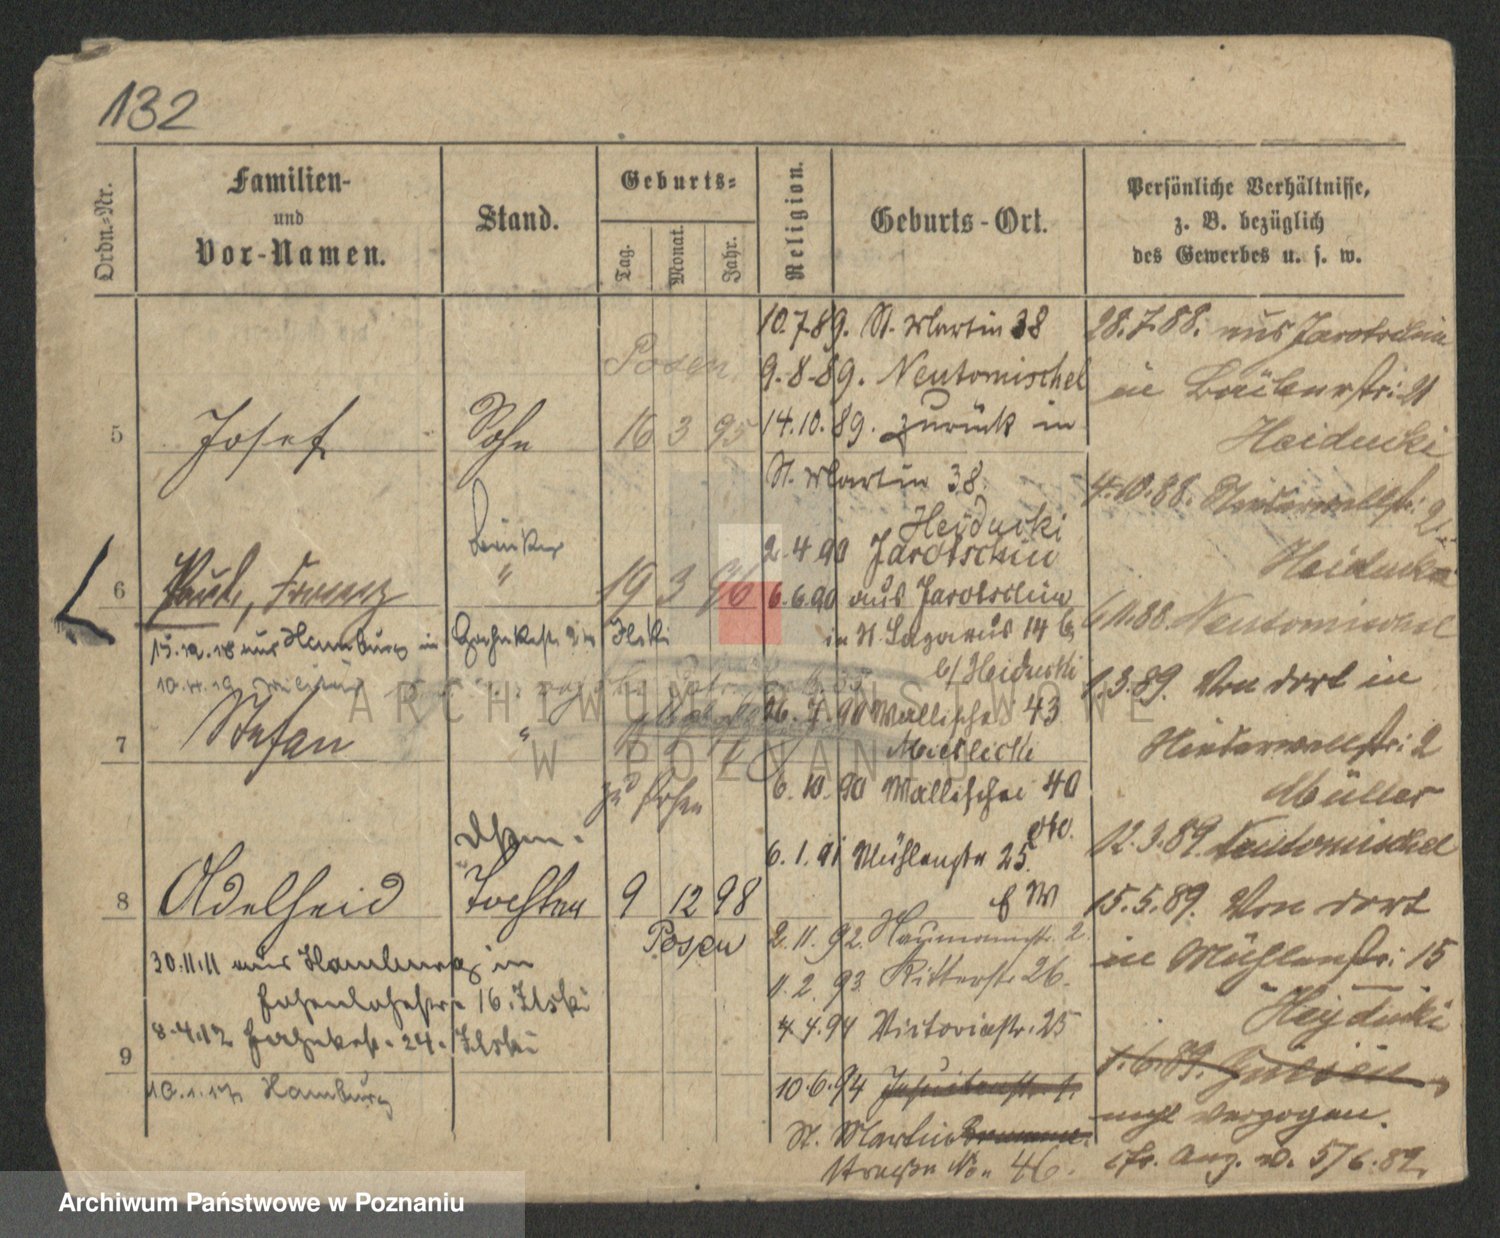 132
Ordn.-Nr.
Familien-
und
Vor-Namen.
Stand.
Geburts-
Tag.
Monat.
Jahr.
Religion.
Geburts-Ort.
Persönliche Verhältnisse,
z. B. bezüglich
des Gewerbes u. s. w.
Posen
5 Josef Sohn 16 3 95
6 Paul, Franz " 19 3 96
15.12.18 aus Hamburg in Ilski
7 Stefan "
8 Adelheid Tochter 9 12 98
Posen
30.11.11 aus Hamburg in
Hohenlohestr. 16. Ilski
8.4.12 24. Ilski
9
10.1.17 Hamburg
10.7.89. St. Martin 38
9.8.89. Neutomischel
14.10.89. zurück in
St. Martin 38.
Heyducki
2.4.90 Jarotschin
6.6.90 aus Jarotschin
in St. Lazarus 14 b
b/ Heiducki
16.7.90 Wallischei 43
6.10.90 Wallischei 40
6.1.91 Mühlenstr 25.
2.11.92. Naumannstr. 2.
11.2.93. Ritterstr. 26.
4.4.94 Victoriastr. 25
10.6.94 Jesuitenstr.
St. Martin
strasse No. 46.
28.7.88. aus Jarotschin
in Bäckerstr: 21
Heiducki
4.10.88. Niederwallstr: 2
Heiducki
6.11.88 Neutomischel
1.3.89. Von dort in
Niederwallstr: 2
Müller
12.3.89. Neutomischel
15.5.89. Von dort
in Mühlenstr: 15
Heyducki
1.6.89.
nicht verzogen.
5/6.89.
ARCHIWUM PAŃSTWOWE
W POZNANIU
Archiwum Państwowe w Poznaniu